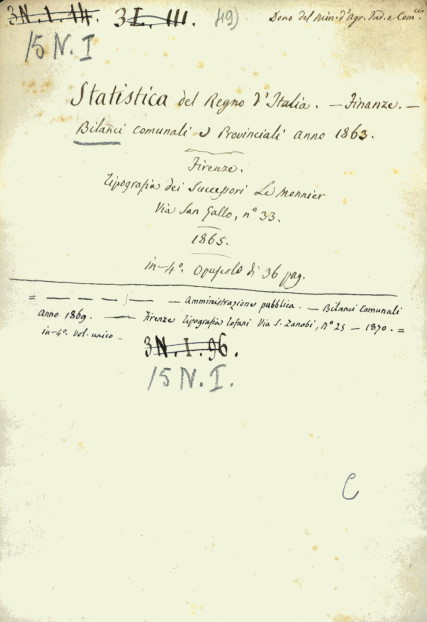 3N.1.14. 3L.III. 49) Dono del Min. d'Agr. Ind. e Com.cio
15 N. I
Statistica del Regno d'Italia. — Finanze. —
Bilanci comunali e Provinciali anno 1863.
Firenze.
Tipografia dei Successori Le Monnier
Via San Gallo, n° 33.
1865.
in-4°. Opuscolo di 36 pag.
= — — — ; — — Amministrazione pubblica. — Bilanci Comunali
anno 1869. — Firenze Tipografia Tofani Via S. Zanobi, n° 25 — 1870. =
in-4°. Vol. unico —
3N.1.96.
15 N. I.
C